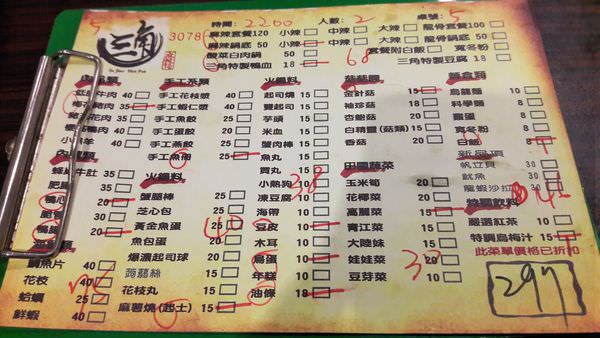 5
三角
San Jiao Hot Pot
3078
時間：2200 人數：2 桌號：5
麻辣套餐120 小辣 中辣 大辣 龍骨套餐100
麻辣鍋底 50 小辣 中辣 大辣 龍骨鍋底 50
酸菜白肉鍋 50 套餐附白飯 寬冬粉
三角特製鴨血 18 68 三角特製豆腐 18
手工系類
手工花枝漿 40
手工蝦仁漿 40
手工魚餃 20
手工蛋餃 20
手工燕餃 20
手工魚冊 25
火鍋料
蟹腿棒 25
芝心包 20
黃金魚蛋 20
魚包蛋 20
爆濃起司球 20
蒟蒻絲 15
花枝丸 15
麻薯燒(起士) 15
火鍋料
起司燒
豐起司
芋頭
米血
蟹肉棒
魚丸
貢丸
小熱狗
凍豆腐
海帶
豆皮
木耳
鳥蛋
年糕
油條 18
菇菇區
金針菇 15
袖珍菇 15
杏鮑菇 15
白精靈(菇類) 15
香菇 15
田園蔬菜
玉米筍 20
花椰菜 20
高麗菜 15
青江菜 10
大陸妹 10
娃娃菜 20
豆芽菜 10
烏龍麵 10
科學麵 8
雞蛋 8
寬冬粉 8
白飯 8
新品項
帆立貝 30
魷魚 30
龍蝦沙拉 30
特調飲料
嚴選紅茶 10
特調烏梅汁 15
此菜單價格已折扣
鴨心 20
鯛魚片 40
花枝 40
蛤蠣 25
鮮蝦 40
297